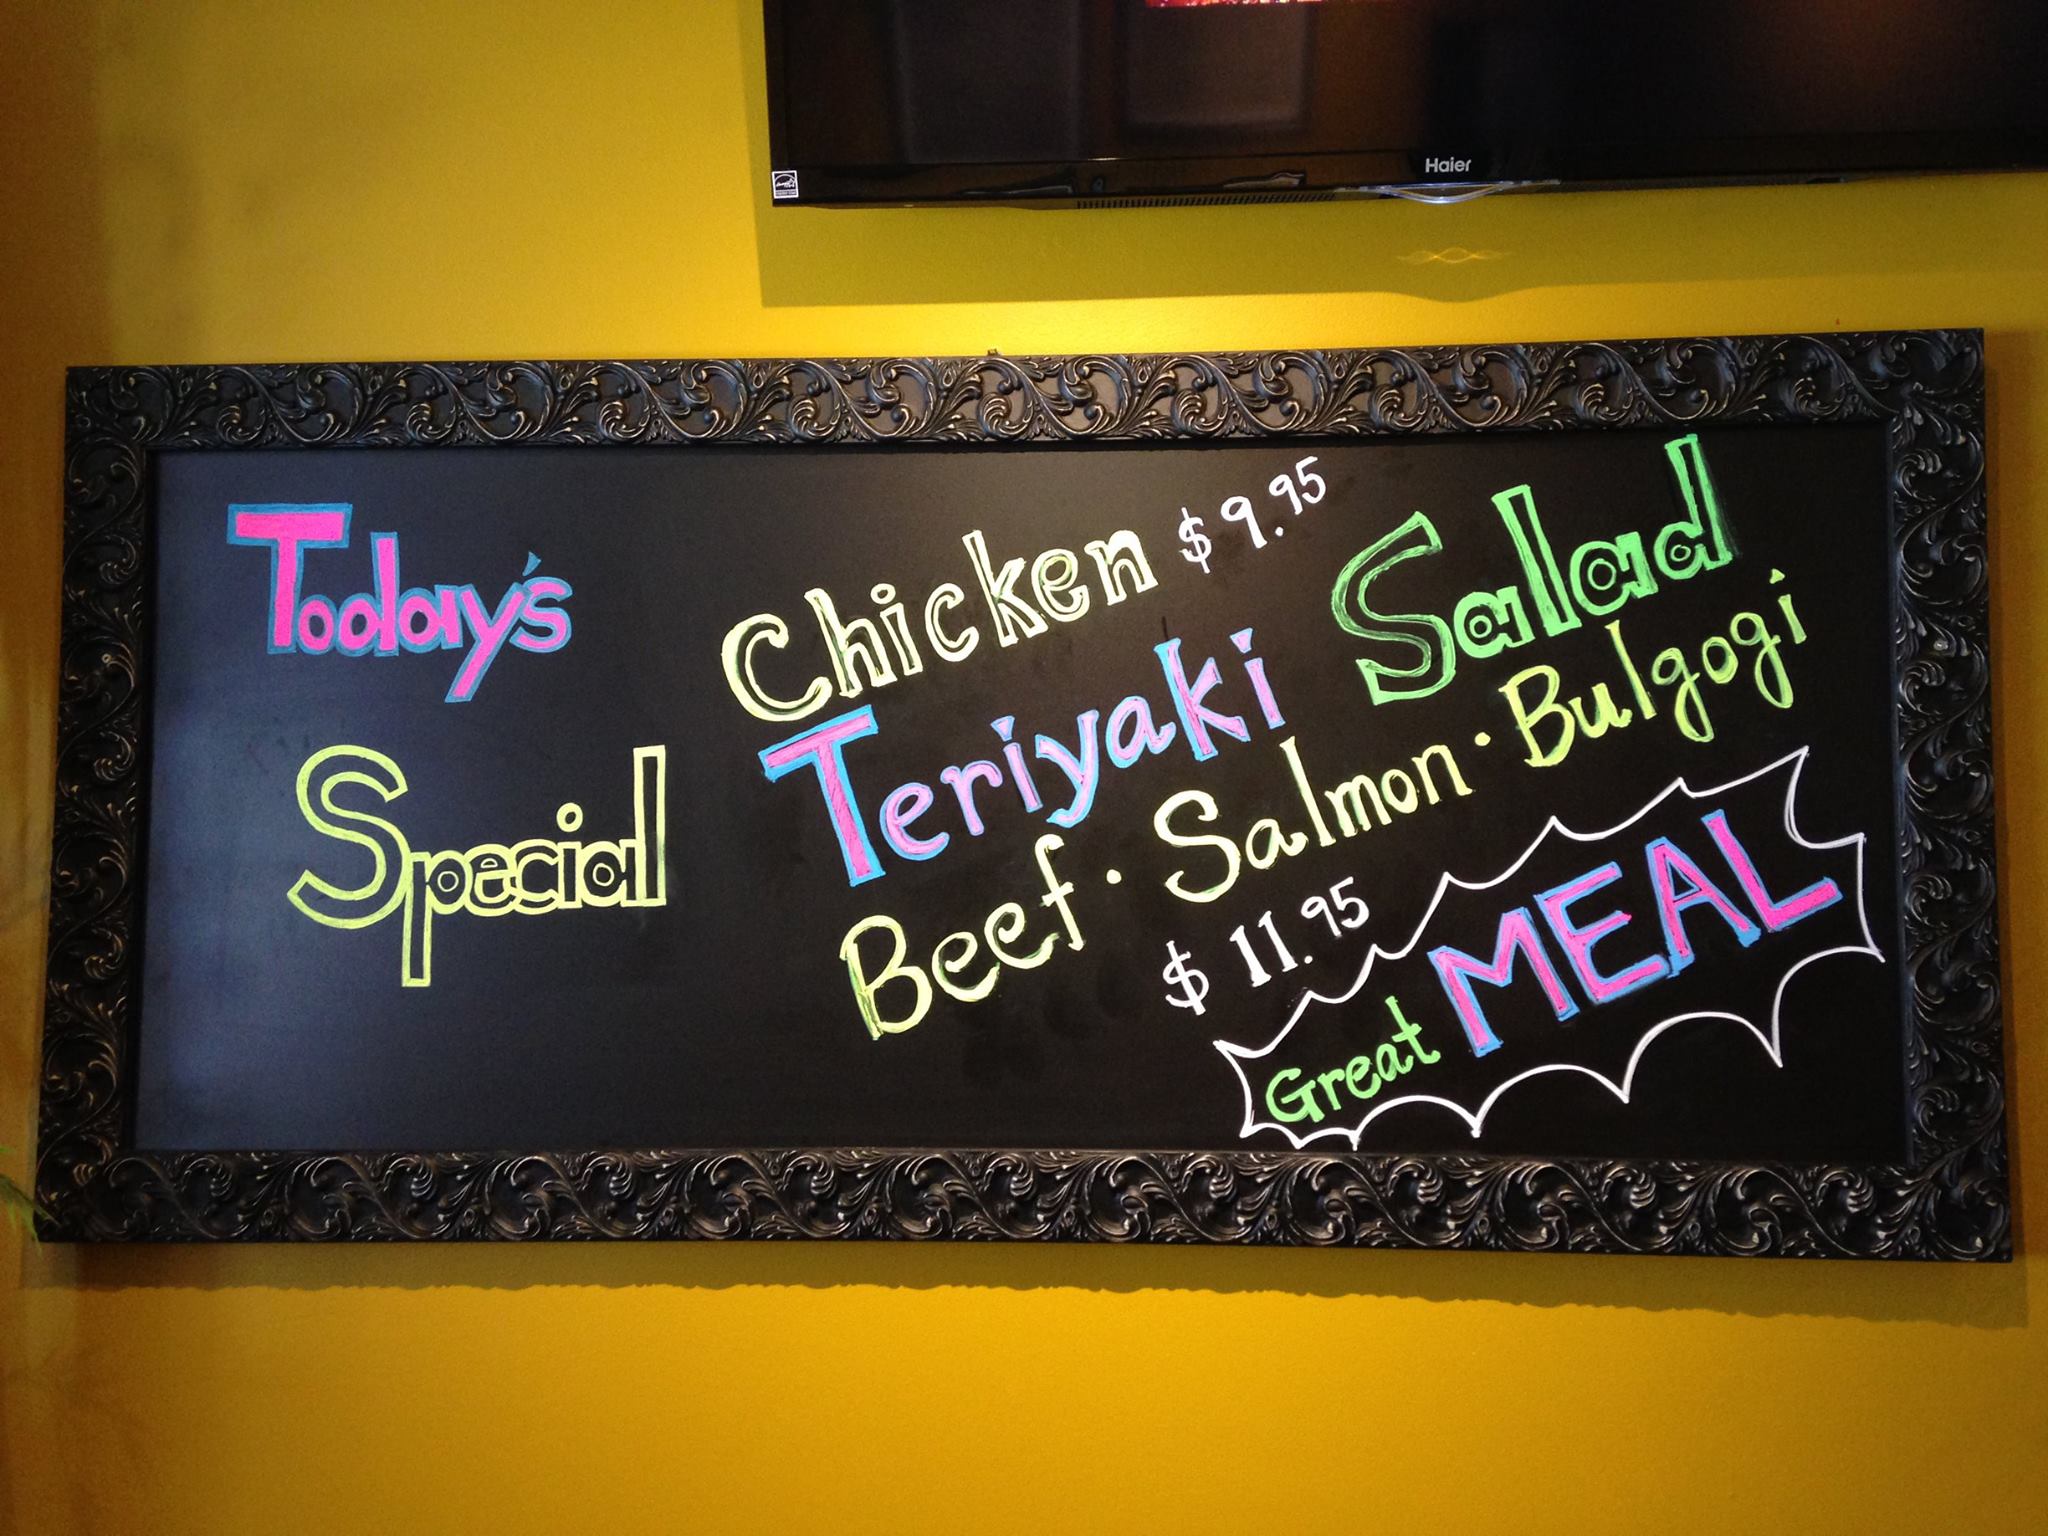 Haier
Today's
Special
Chicken $ 9.95
Teriyaki Salad
Beef · Salmon · Bulgogi
$ 11.95
Great MEAL